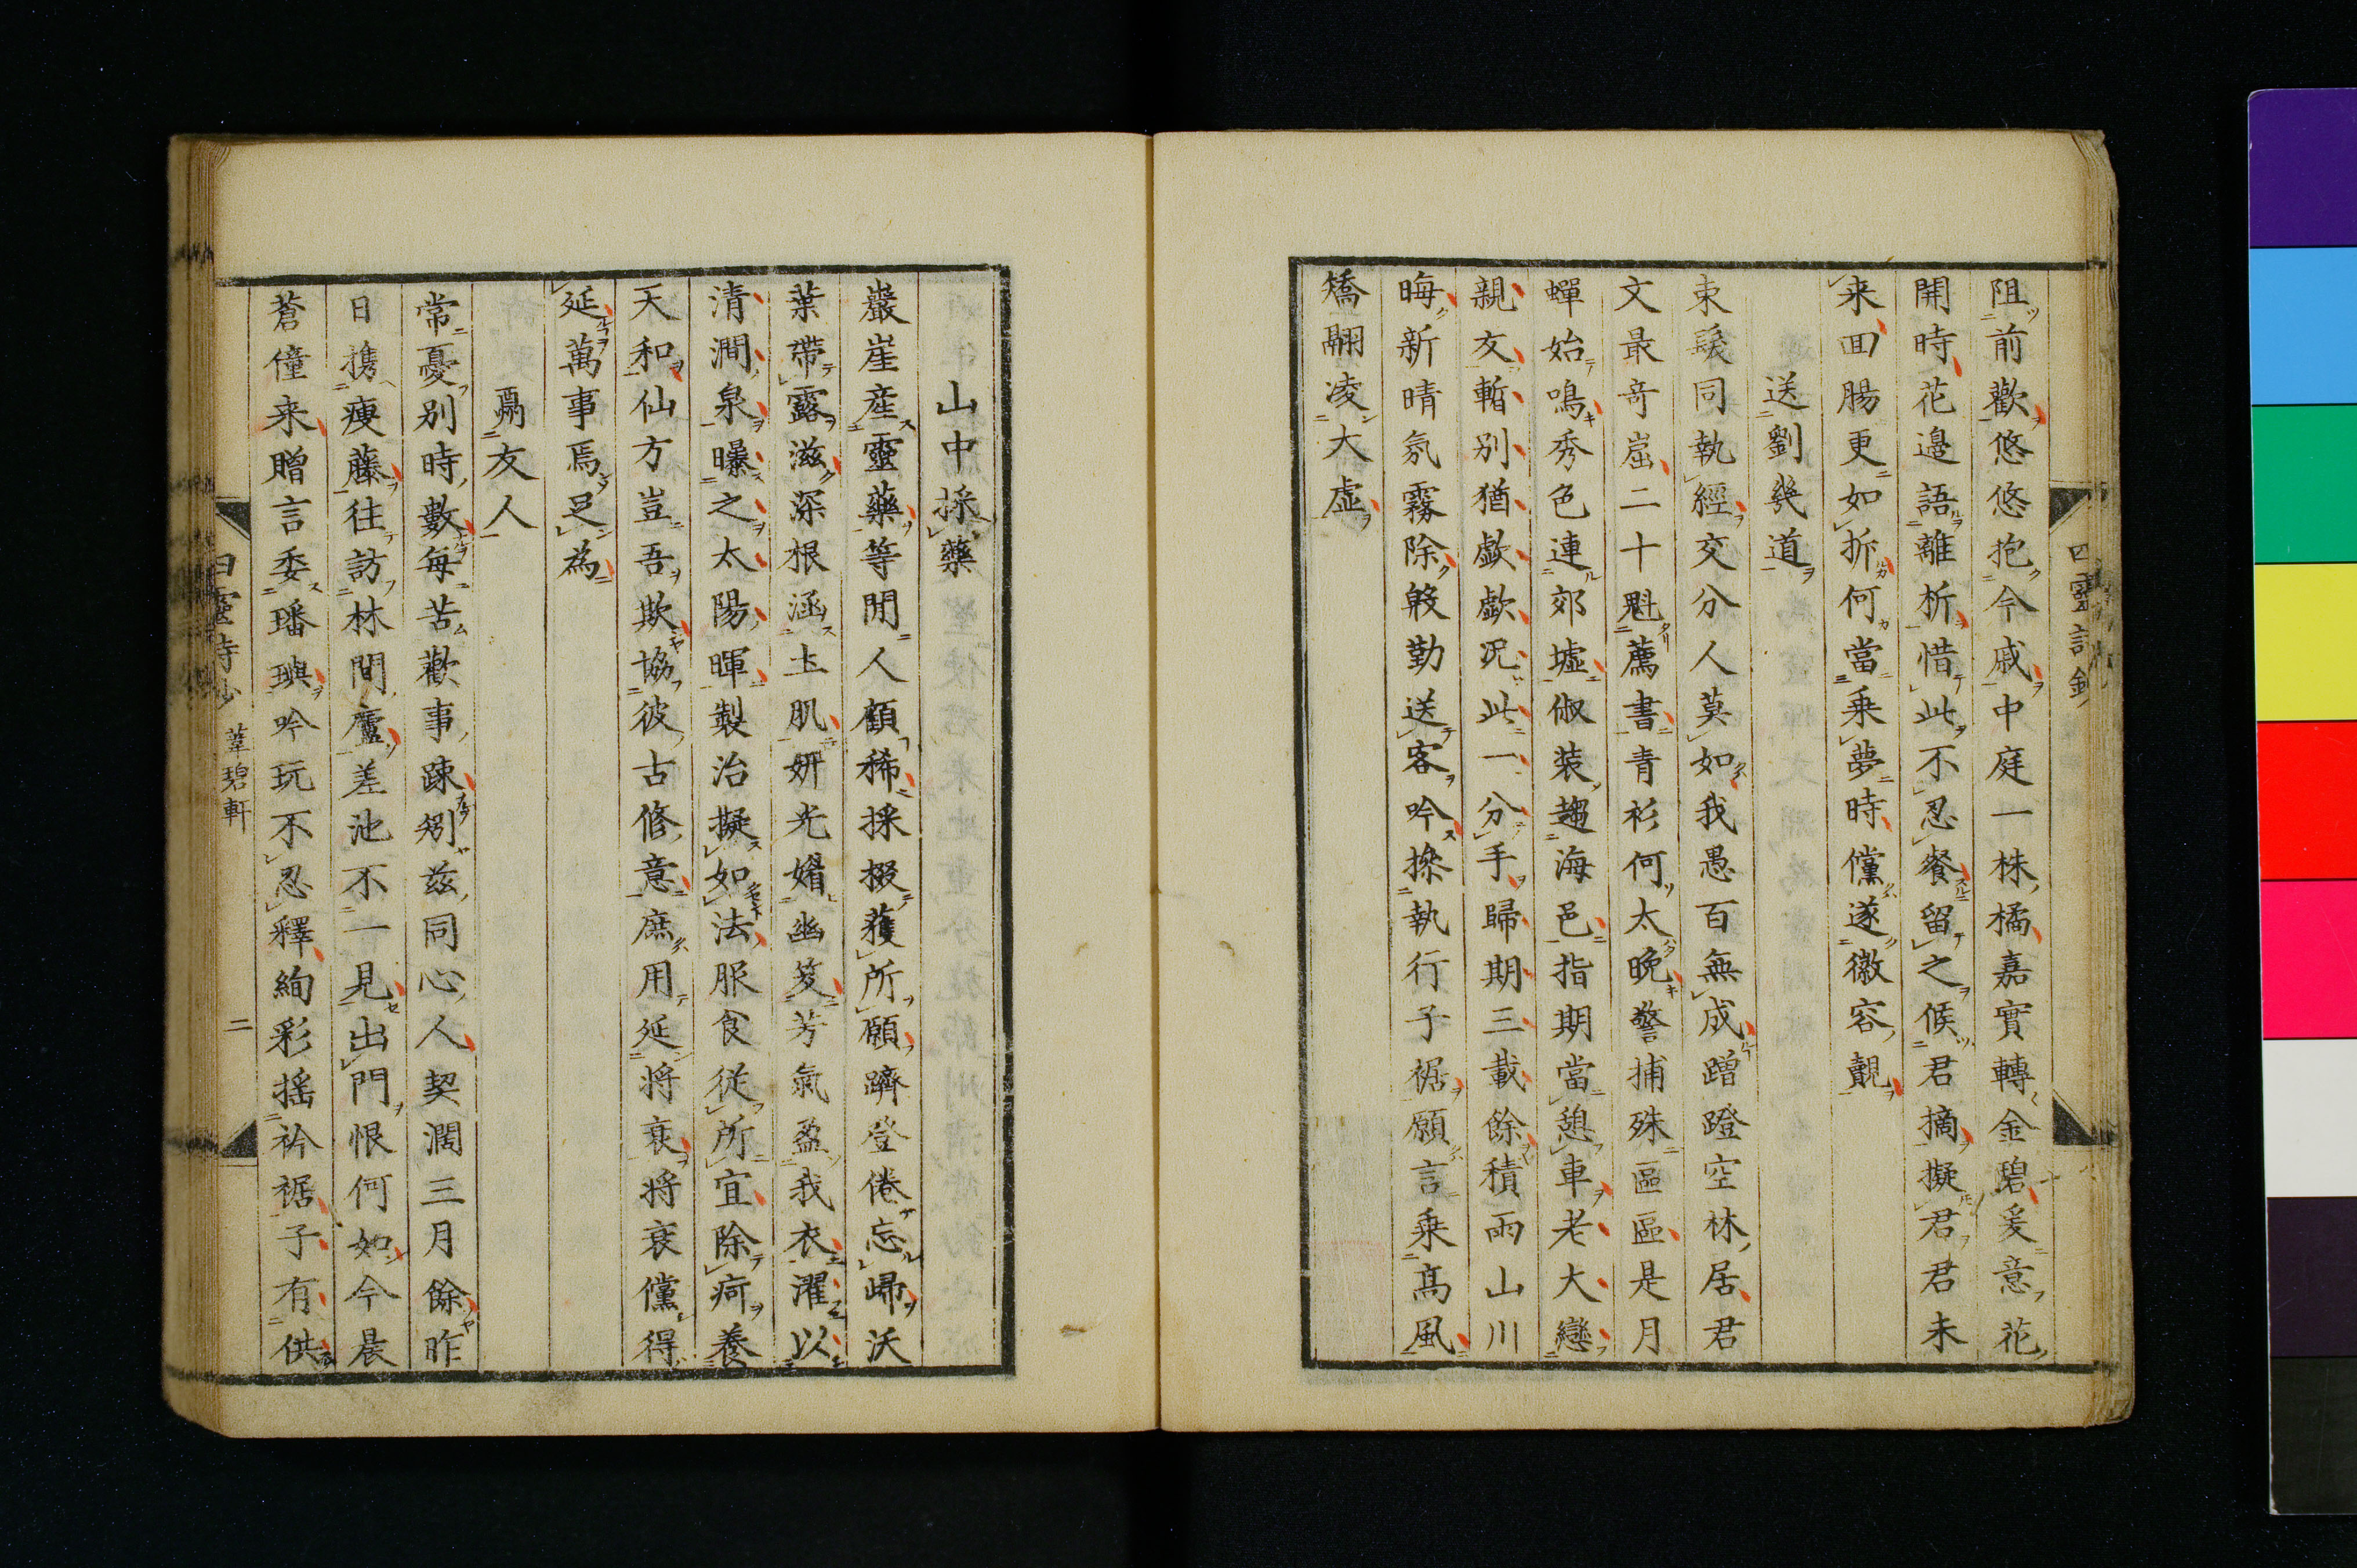 阻前歡悠悠抱今戚中庭一株橘嘉實轉金碧爰意花
開時花邉語離析惜此不忍餐留之候君摘擬君君未
来回腸更如折何當乘夢時儻遂徽容覿
送劉幾道
束髮同執經交分人莫如我愚百無成蹭蹬空林居君
文最竒崛二十魁薦書青衫何太晚警捕殊區區是月
蟬始鳴秀色連郊墟俶装趨海邑指期當憩車老大戀
親友暫别猶歔歔况此一分手歸期三載餘積雨山川
晦新晴氛霧除毃勤送客吟摻執行子裾願言乘髙風
矯翮凌大虚
山中採藥
巖崖産靈藥等閒人顧稀採掇獲所願躋登倦忘歸沃
葉帶露滋深根涵土肌妍光媚幽笈芳氣盈我衣濯以
清澗泉曝之太陽暉製治擬如法服食従所宜除疴養
天和仙方豈吾欺協彼古修意庶用延将衰将衰儻得
延萬事焉足為
酬友人
常憂别時數每苦歡事踈矧兹同心人契濶三月餘昨
日携瘦藤往訪林間廬差池不一見出門恨何如今晨
蒼僮来贈言委璠璵吟玩不忍釋絢彩揺衿裾子有供
四靈詩鈔
四靈詩鈔 葦碧軒 二